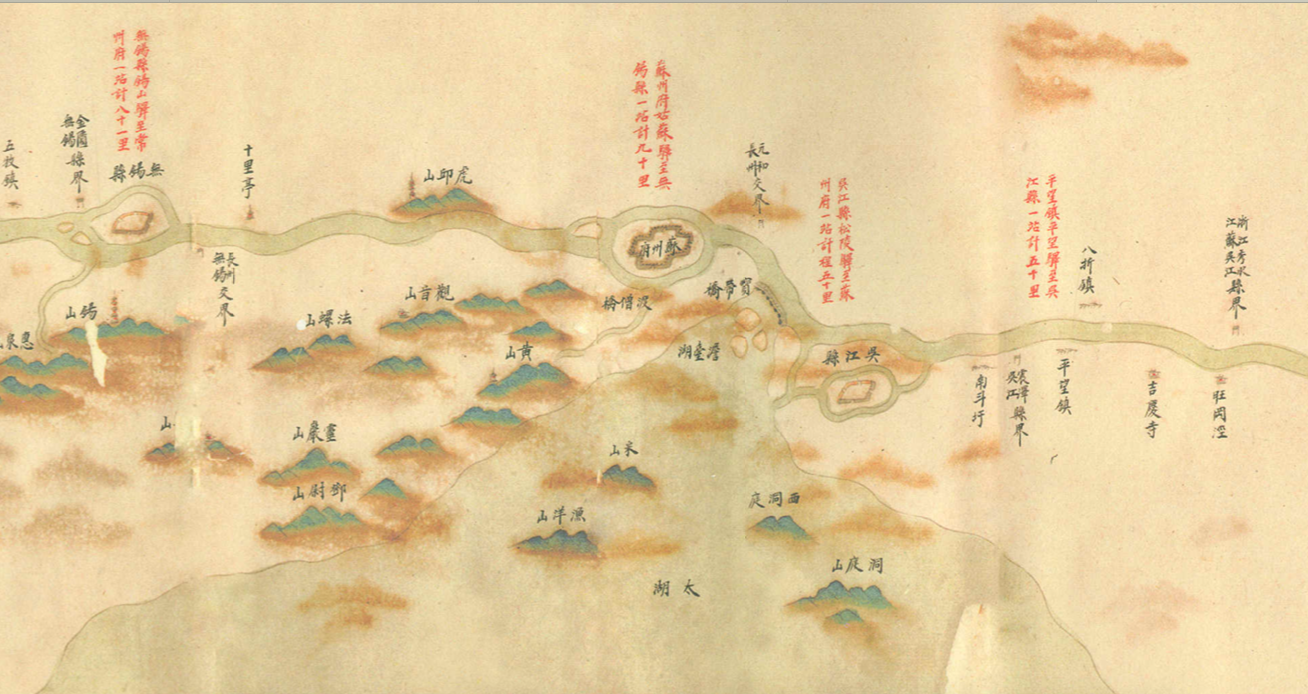 浙江秀水
江蘇吳江
縣界
旺岡涇
吉慶寺
八折鎮
平望鎮平望驛至吳
江縣一站計五十里
平望鎮
震澤
吳江
縣界
南斗圩
吳江縣松陵驛至蘇
州府一站計程五十里
吳江縣
元和
長州
交界
寶帶橋
澹臺湖
西洞庭
洞庭山
蘇州府姑蘇驛至無
錫縣一站計九十里
蘇州府
沒僧橋
太湖
漁洋山
虎邱山
觀音山
黃山
法螺山
畫嚴山
鄧尉山
十里亭
長州
無錫
交界
無錫縣錫山驛至常
州府一站計八十一里
無錫縣
金匱
無錫
縣界
錫山
山
惠泉
五牧鎮